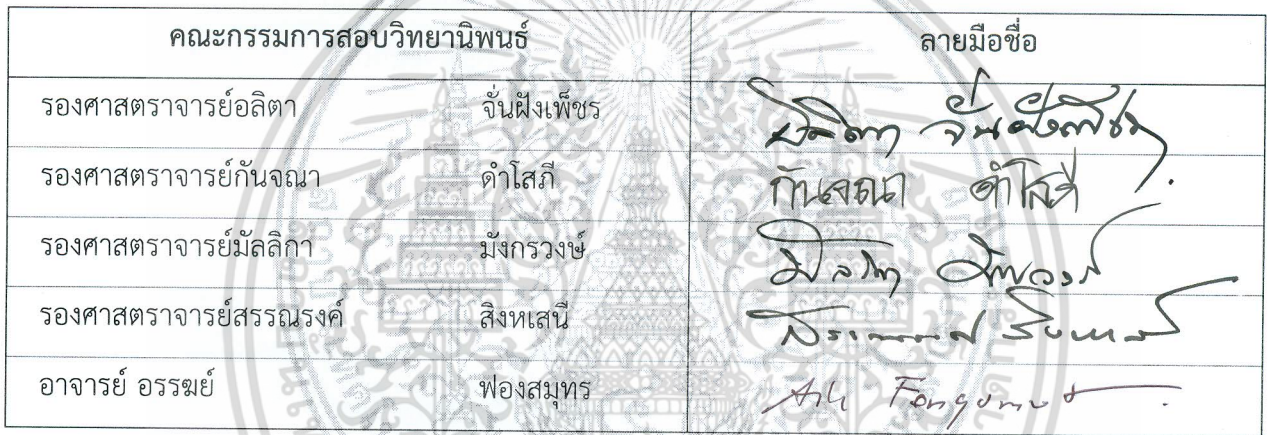 คณะกรรมการสอบวิทยานิพนธ์ ลายมือชื่อ
รองศาสตราจารย์อลิตา จั่นฝังเพ็ชร
รองศาสตราจารย์กันจณา ดำโสภี กันจณา ดำโสภี
รองศาสตราจารย์มัลลิกา มังกรวงษ์
รองศาสตราจารย์สรรณรงค์ สิงหเสนี
อาจารย์ อรรฆย์ ฟองสมุทร